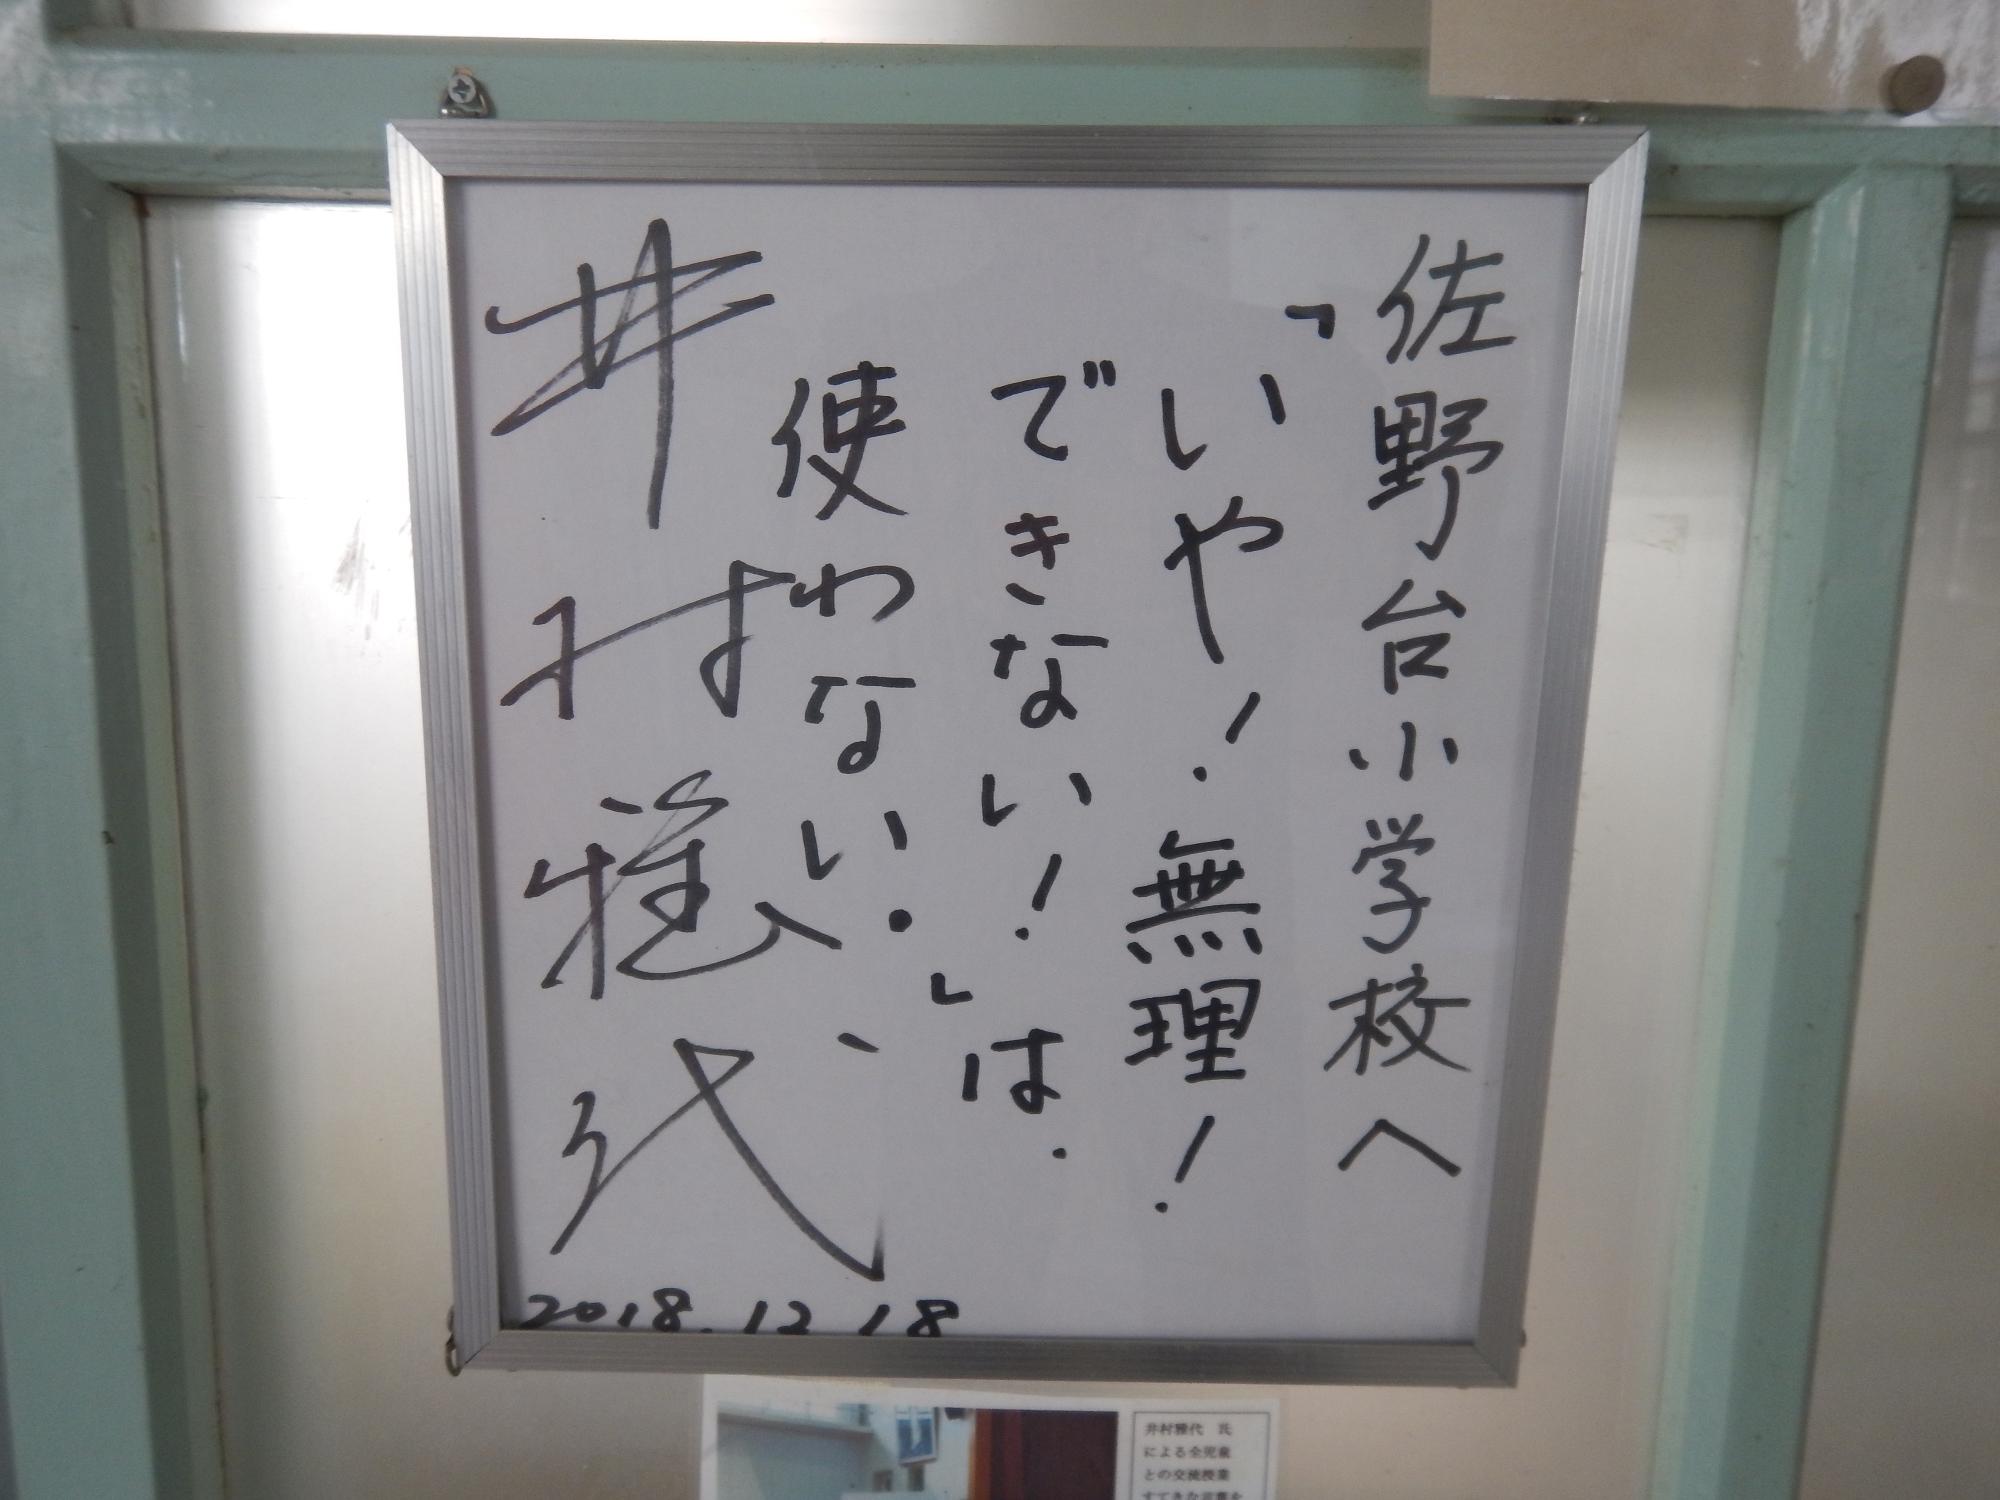 佐野台小学校へ
「いや！無理！
できない！」は、
使わない・
井村雅代
2018.12.18
井村雅代 氏
による全児童
との交流授業
すてきな言葉を